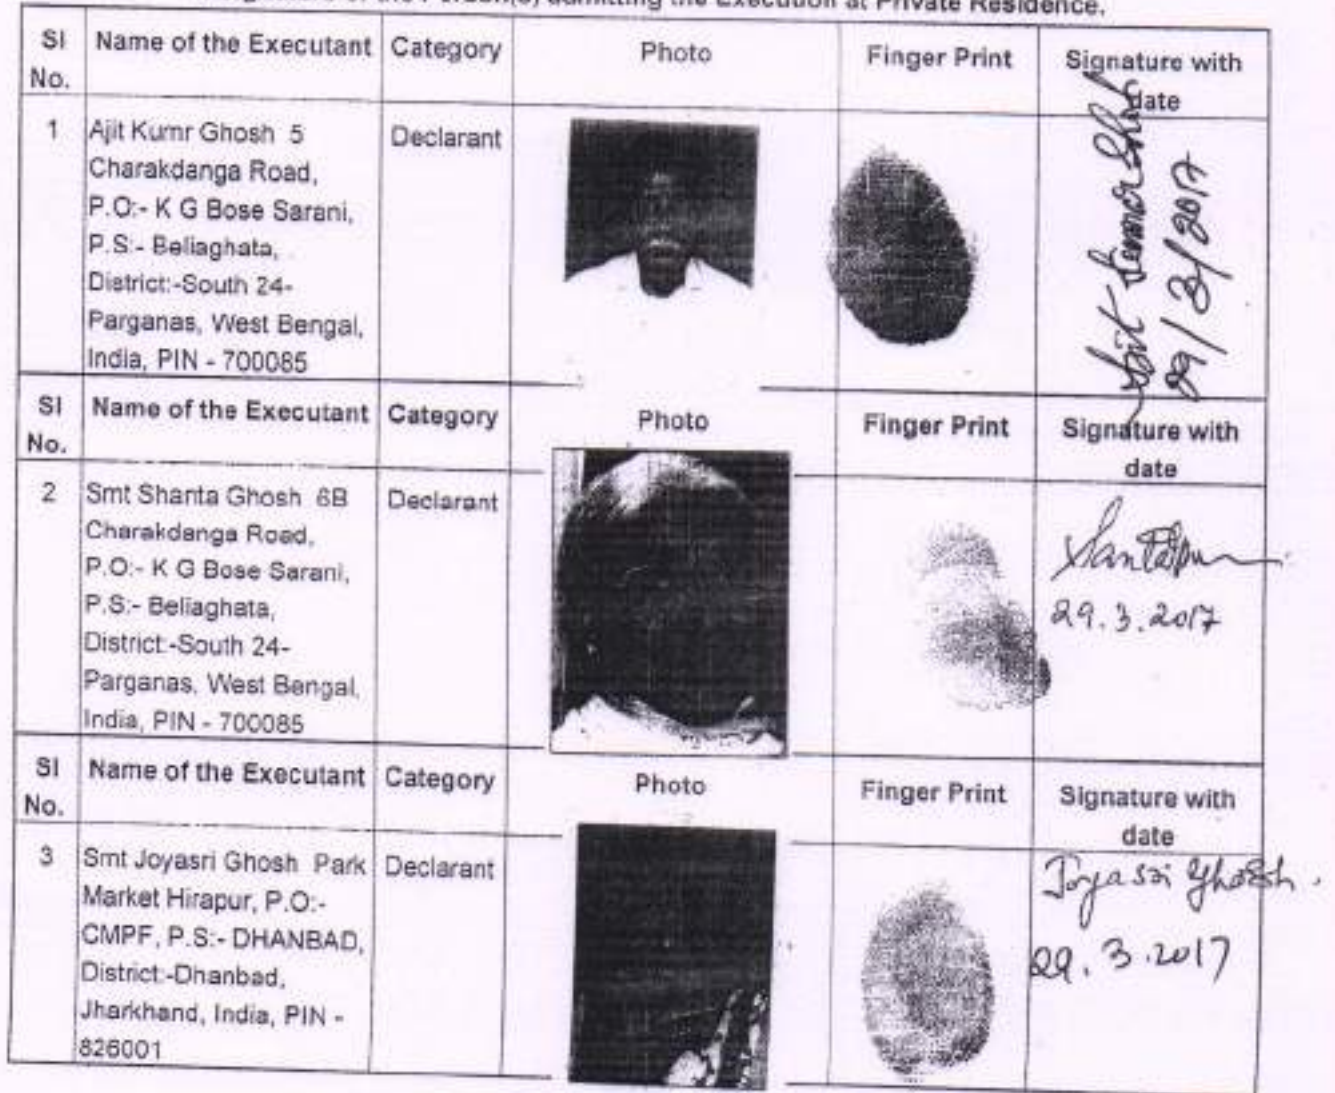 of the Person(s) admitting the Execution at Private Residence.
Sl No. Name of the Executant Category Photo Finger Print Signature with date
1 Ajit Kumr Ghosh 5 Declarant
Charakdanga Road,
P.O:- K G Bose Sarani,
P.S:- Beliaghata,
District:-South 24-
Parganas, West Bengal,
India, PIN - 700085
Ajit Kumar Ghosh
29/3/2017
Sl No. Name of the Executant Category Photo Finger Print Signature with date
2 Smt Shanta Ghosh 6B Declarant
Charakdanga Road,
P.O:- K G Bose Sarani,
P.S:- Beliaghata,
District:-South 24-
Parganas, West Bengal,
India, PIN - 700085
29.3.2017
Sl No. Name of the Executant Category Photo Finger Print Signature with date
3 Smt Joyasri Ghosh Park Declarant
Market Hirapur, P.O:-
CMPF, P.S:- DHANBAD,
District:-Dhanbad,
Jharkhand, India, PIN -
826001
Joyasri Ghosh.
29.3.2017